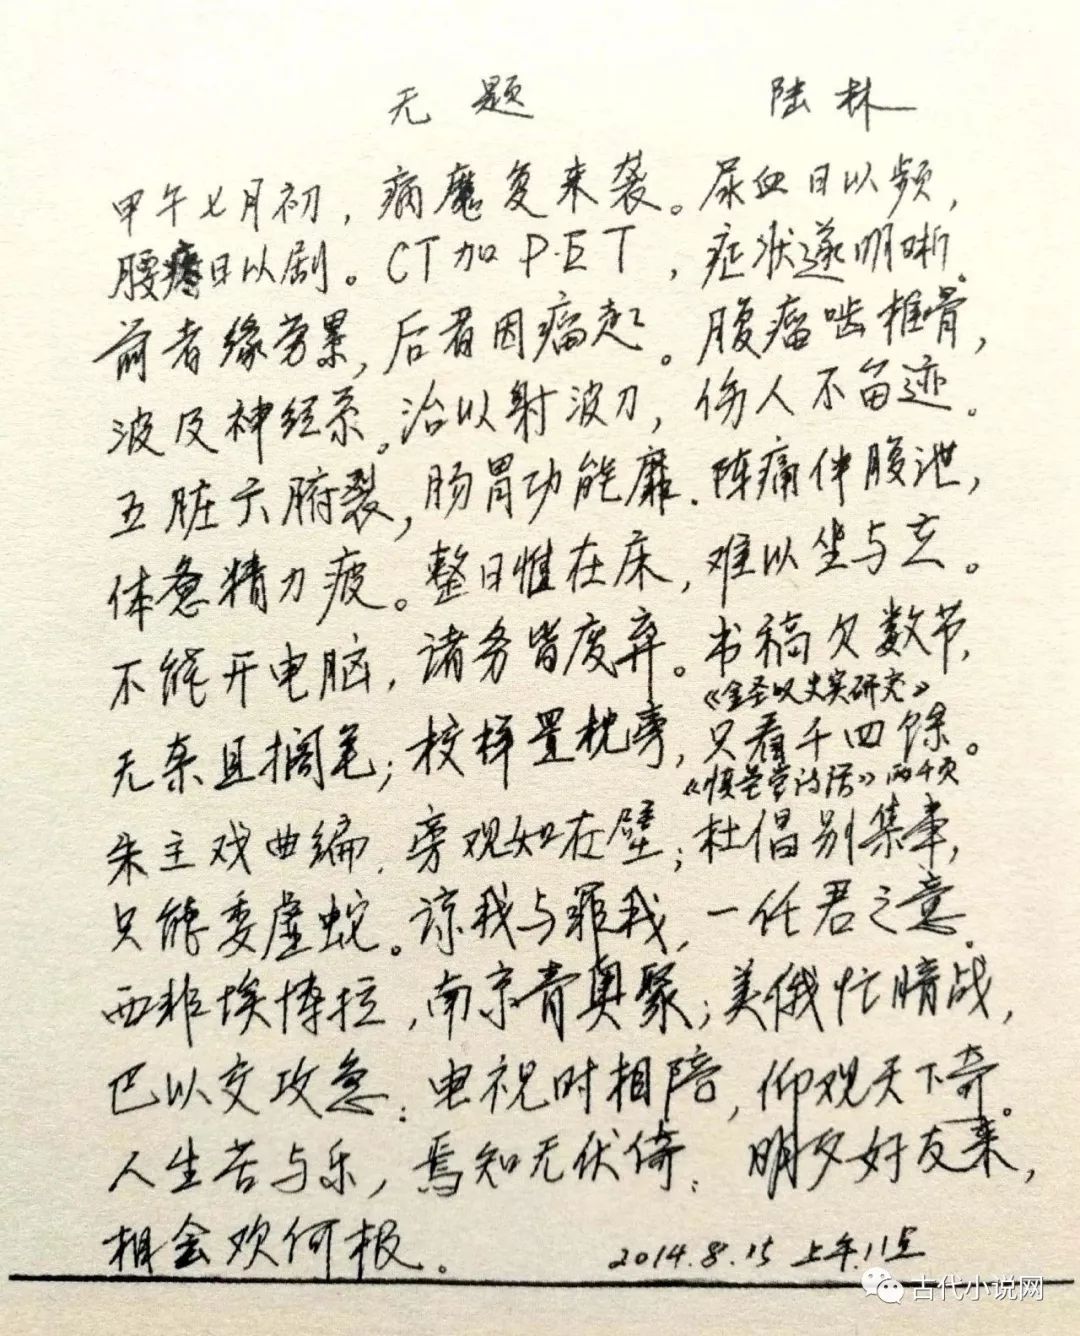 无题 陆林
甲午七月初，病魔复来袭。尿血日以频，
腰疼日以剧。CT加P.E.T，症状遂明晰。
前者缘劳累，后者因瘤起。腹瘤啮椎骨，
波及神经系。治以射波刀，伤人不留迹。
五脏六腑裂，肠胃功能靡。阵痛伴腹泄，
体惫精力疲。整日惟在床，难以坐与立。
不能开电脑，诸务皆废弃。书稿欠数节，
《金圣叹史实研究》
无奈且搁笔；校样置枕旁，只看千四馀。
《慎墨堂诗话》两千页
朱主戏曲编，旁观如在壁；杜倡别集事，
只能委虚蛇。谅我与罪我，一任君之意。
西非埃博拉，南京青奥聚；美俄忙暗战，
巴以交攻急；电视时相陪，仰观天下奇。
人生苦与乐，焉知无伏倚；明夕好友来，
相会欢何极。 2014.8.15 上午11点
古代小说网